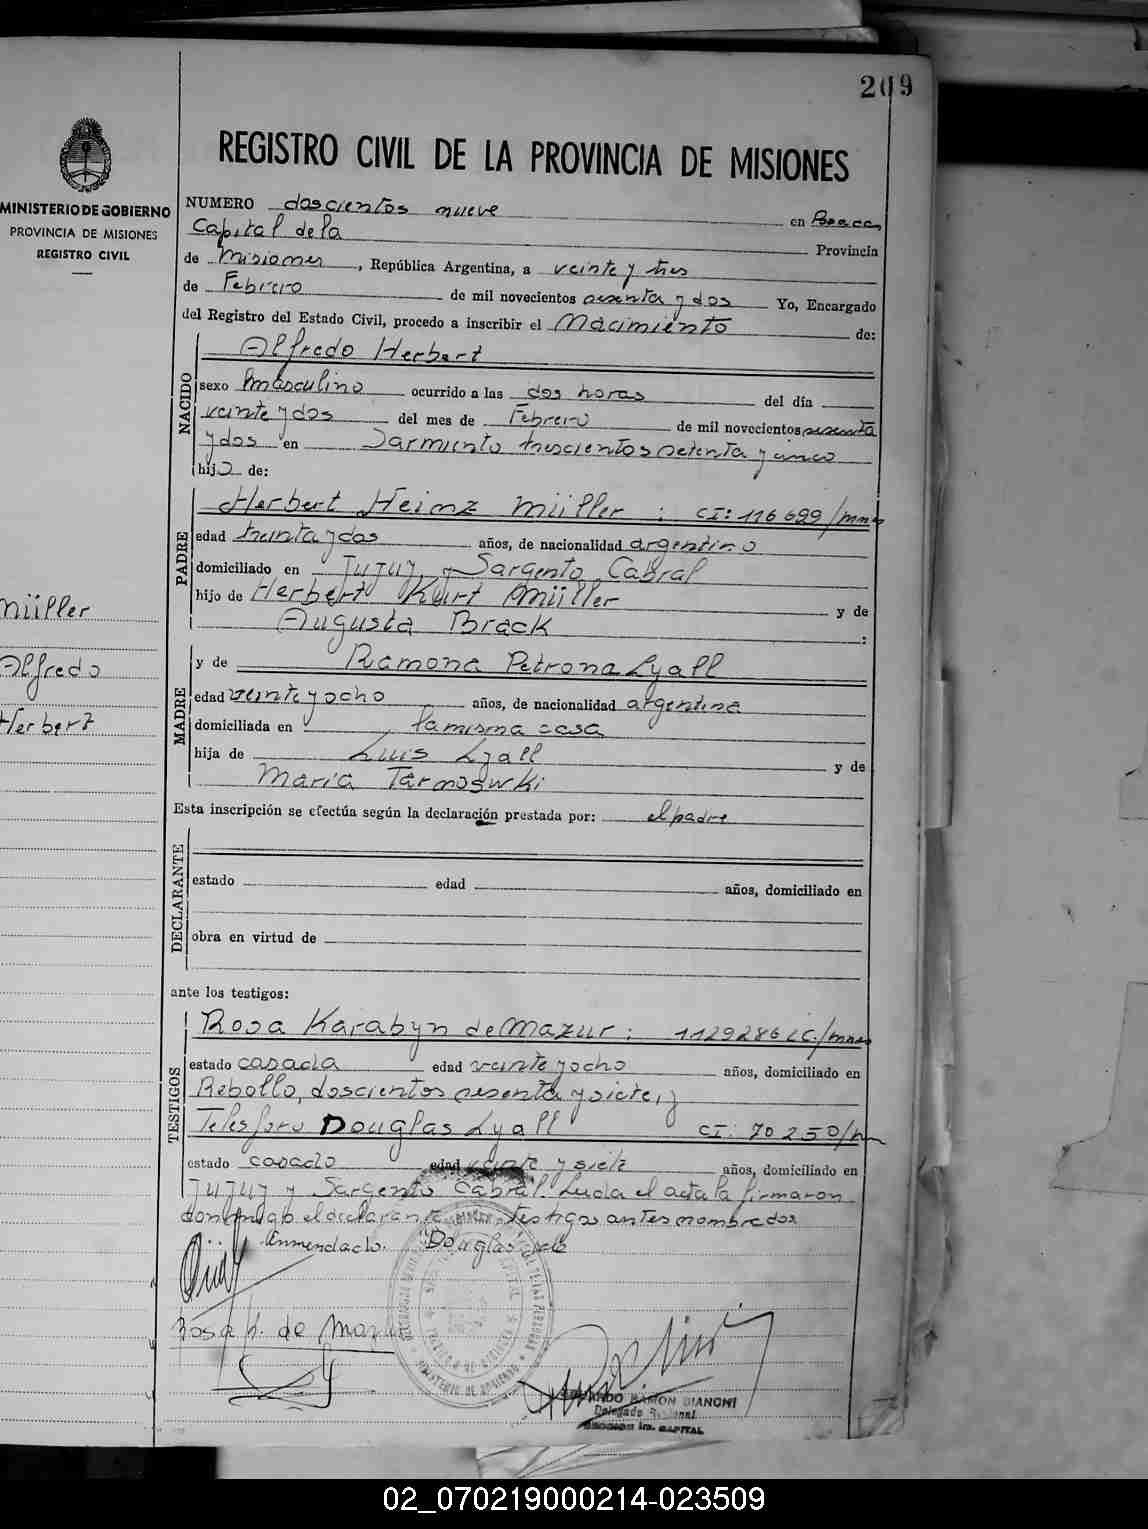 209
REGISTRO CIVIL DE LA PROVINCIA DE MISIONES
MINISTERIO DE GOBIERNO
PROVINCIA DE MISIONES
REGISTRO CIVIL
NUMERO doscientos nueve en
Capital de la Provincia
de Misiones, República Argentina, a veinte y tres
de Febrero de mil novecientos sesenta y dos Yo, Encargado
del Registro del Estado Civil, procedo a inscribir el Nacimiento de:
NACIDO
Alfredo Herbert
sexo masculino ocurrido a las dos horas del día
veinte y dos del mes de Febrero de mil novecientos sesenta
y dos en Sarmiento trescientos setenta y cinco
hijo de:
PADRE
Herbert Heinz Müller : CI: 116699/mnes
edad treinta y dos años, de nacionalidad argentino
domiciliado en Jujuy y Sargento Cabral
hijo de Herbert Kurt Müller y de
Augusta Brack :
müller
Alfredo
Herbert
MADRE
y de Ramona Petrona Lyall
edad veinte y ocho años, de nacionalidad argentina
domiciliada en la misma casa
hija de Luis Lyall y de
Maria Tarnoswki
Esta inscripción se efectúa según la declaración prestada por: el padre
DECLARANTE
estado edad años, domiciliado en
obra en virtud de
ante los testigos:
TESTIGOS
Rosa Karabyn de Mazur: 1129286 LC./mnes
estado casada edad veinte y ocho años, domiciliado en
Rebollo, doscientos sesenta y siete, y
Telesforo Douglas Lyall CI: 70250/m
estado casado edad veinte y siete años, domiciliado en
Jujuy y Sargento Cabral. Leida el acta la firmaron
conmigo el declarante testigos antes nombrados
Enmendado. "Douglas" vale
Rosa K. de Mazur
RAMON BIANCHI
Delegado Regional
CAPITAL
02_070219000214-023509